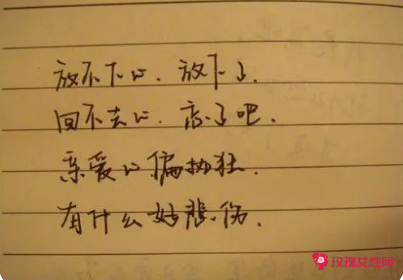 放不下的.放下了.
回不去的.忘了吧.
亲爱的偏执狂.
有什么好悲伤.
玫瑰女性网